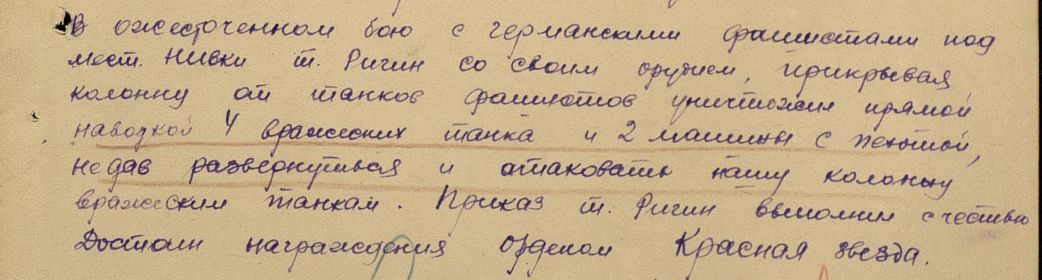 В ожесточенном бою с германскими фашистами под
мест. Нивки т. Ригин со своим орудием, прикрывая
колонну от танков фашистов уничтожил прямой
наводкой 4 вражеских танка и 2 машины с пехотой,
не дав развернуться и атаковать нашу колонну
вражеским танкам. Приказ т. Ригин выполнил с честью
Достоин награждения орденом Красная звезда.